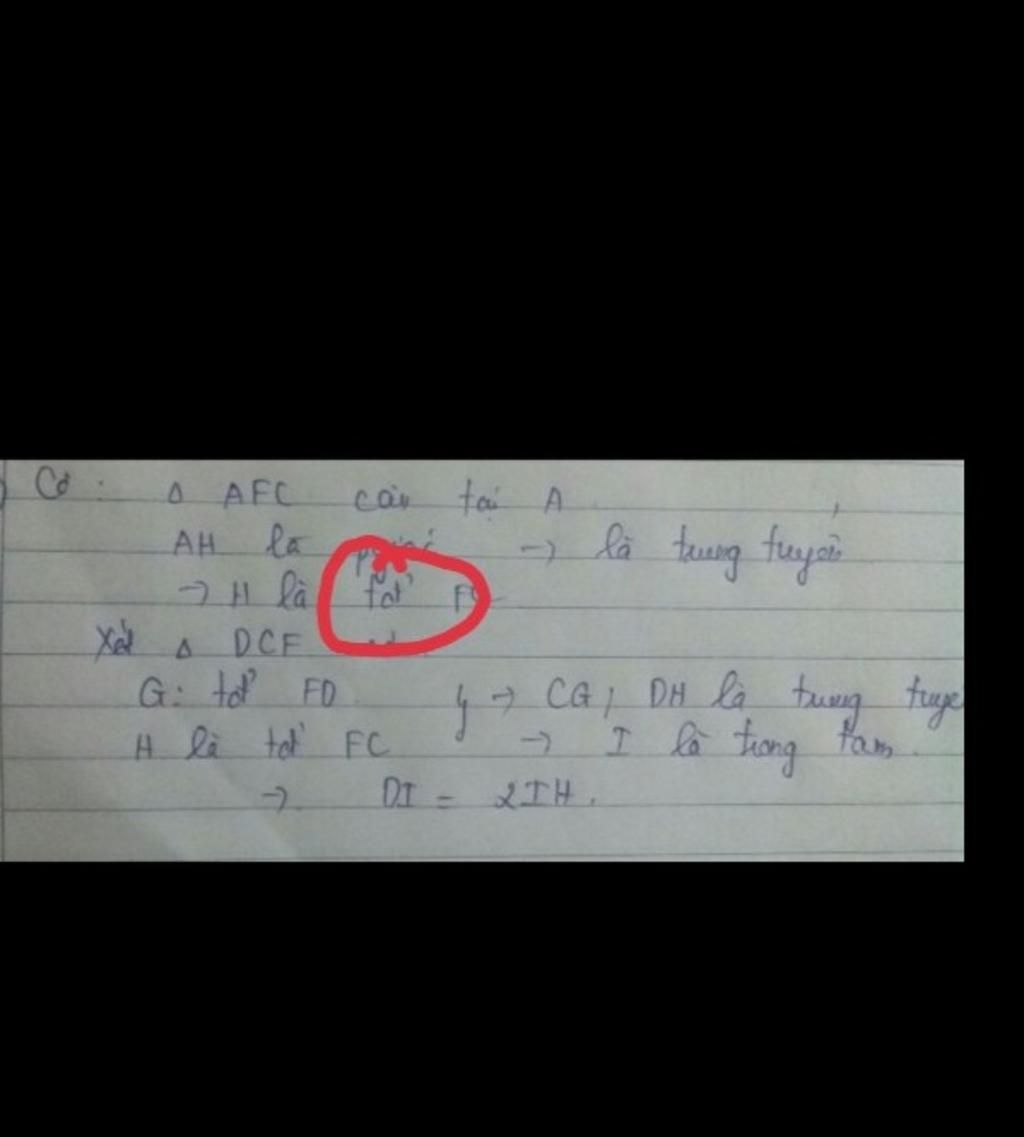 Có : Δ AFC cân tại A
AH là → là trung tuyến
→ H là tđ' FC
Xét Δ DCF có
G: tđ' FD } → CG, DH là trung tuyế
H là tđ' FC → I là trọng tâm.
→ DI = 2IH.